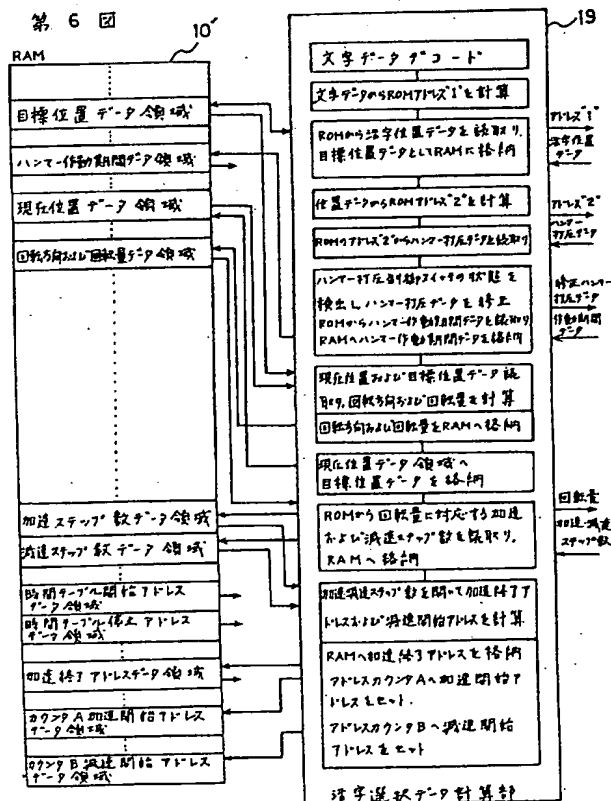 第 6 図
10'
19
RAM
目標位置データ領域
ハンマー作動期間データ領域
現在位置データ領域
回転方向および回転量データ領域
加速ステップ数データ領域
減速ステップ数データ領域
時間テーブル開始アドレス
データ領域
時間テーブル停止アドレス
データ領域
加速終了アドレスデータ領域
カウンタA加速開始アドレス
データ領域
カウンタB減速開始アドレス
データ領域
文字データデコード
文字データからROMアドレス"1"を計算
ROMから活字位置データを読取り、
目標位置データとしてRAMに格納
位置データからROMアドレス"2"を計算
ROMのアドレス"2"からハンマー打圧データを読取り
ハンマー打圧切換スイッチの状態を
検出し、ハンマー打圧データを修正
ROMからハンマー作動期間データを読取り
RAMへハンマー作動期間データを格納
現在位置および目標位置データ読
取り、回転方向および回転量を計算
回転方向および回転量をRAMへ格納
現在位置データ領域へ
目標位置データを格納
ROMから回転量に対応する加速
および減速ステップ数を読取り、
RAMへ格納
加速減速ステップ数を用いて加速終了ア
ドレスおよび減速開始アドレスを計算
RAMへ加速終了アドレスを格納
アドレスカウンタAへ加速開始ア
ドレスをセット.
アドレスカウンタBへ減速開始
アドレスをセット
活字選択データ計算部
アドレス"1"
活字位置
データ
アドレス"2"
ハンマー
打圧データ
修正ハンマー
打圧データ
作動期間
データ
回転量
加速・減速
ステップ数